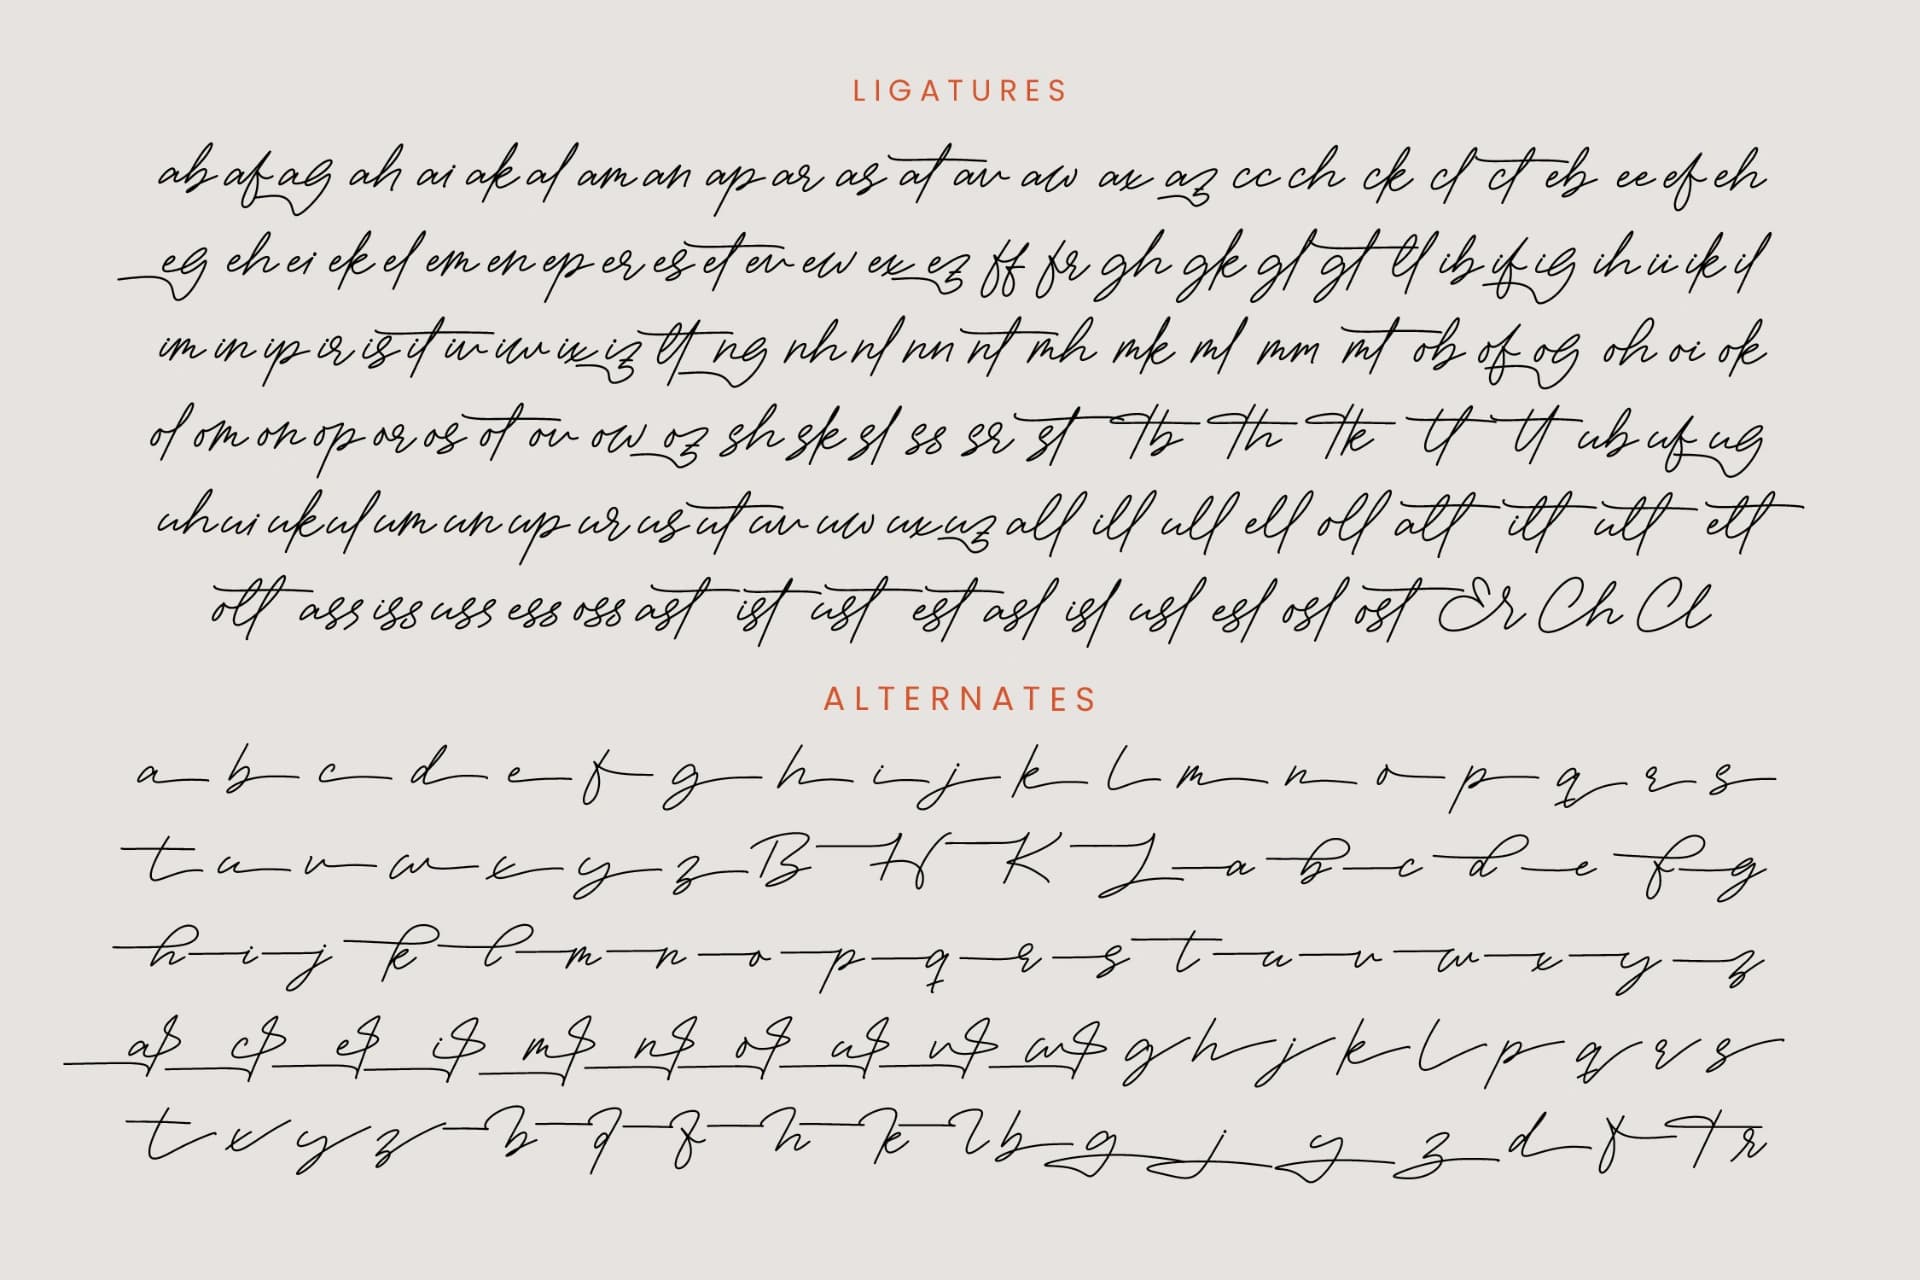 LIGATURES
ab af ag ah ai ak al am an ap ar as at av aw ax az cc ch ck cl ct eb ee ef eh
eg eh ei ek el em en ep er es et ev ew ex ez ff fr gh gk gl gt ll ib if ig ih ii ik il
im in ip ir is it iv iw ix iz lt ng nh nl nn nt mh mk ml mm mt ob of og oh oi ok
ol om on op or os ot ov ow oz sh sk sl ss sr st tb th tk tl tt ub uf ug
uh ui uk ul um un up ur us ut uv uw ux uz all ill ull ell oll att itt utt ett
ott ass iss uss ess oss ast ist ust est asl isl usl esl osl ost Er Ch Cl
ALTERNATES
a b c d e f g h i j k l m n o p q r s
t u v w x y z B H K L a b c d e f g
h i j k l m n o p q r s t u v w x y z
g h j k l p q r s
t x y z b d f h k l b g j y z d f Tr